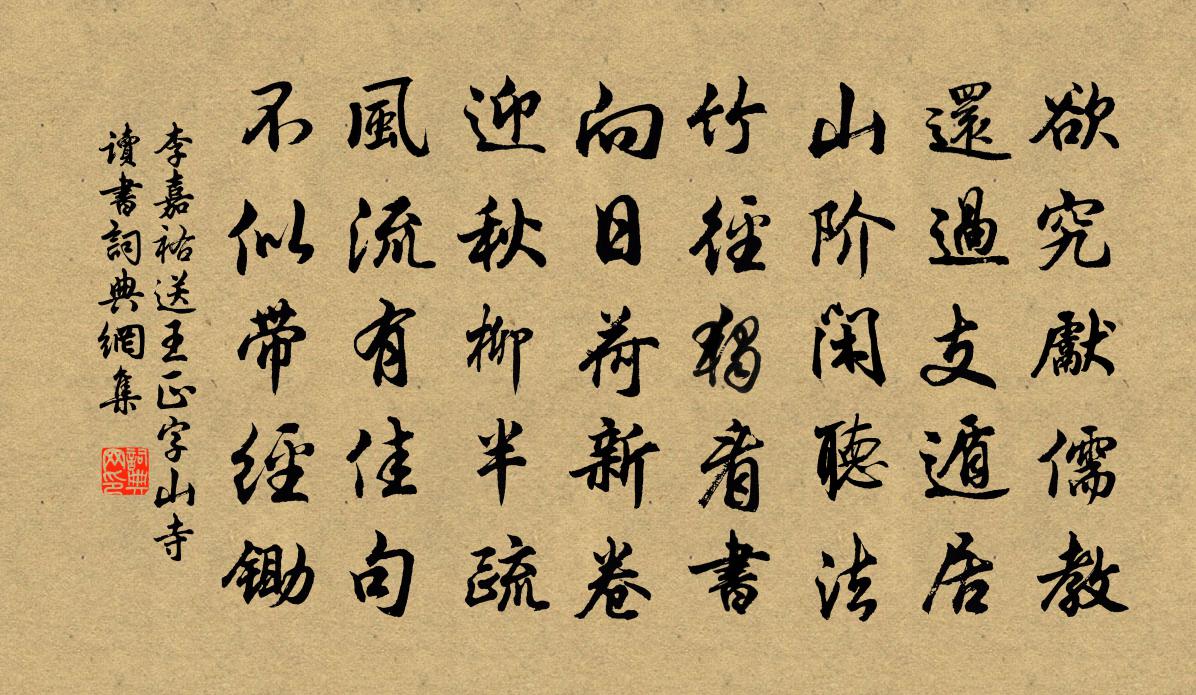 欲究獻儒教
還過支遁居
山阶閑聽法
竹徑獨看書
向日荷新卷
迎秋柳半疏
風流有佳句
不似带經鋤
李嘉祐送王正字山寺
讀書詞典網集
詞典
网印